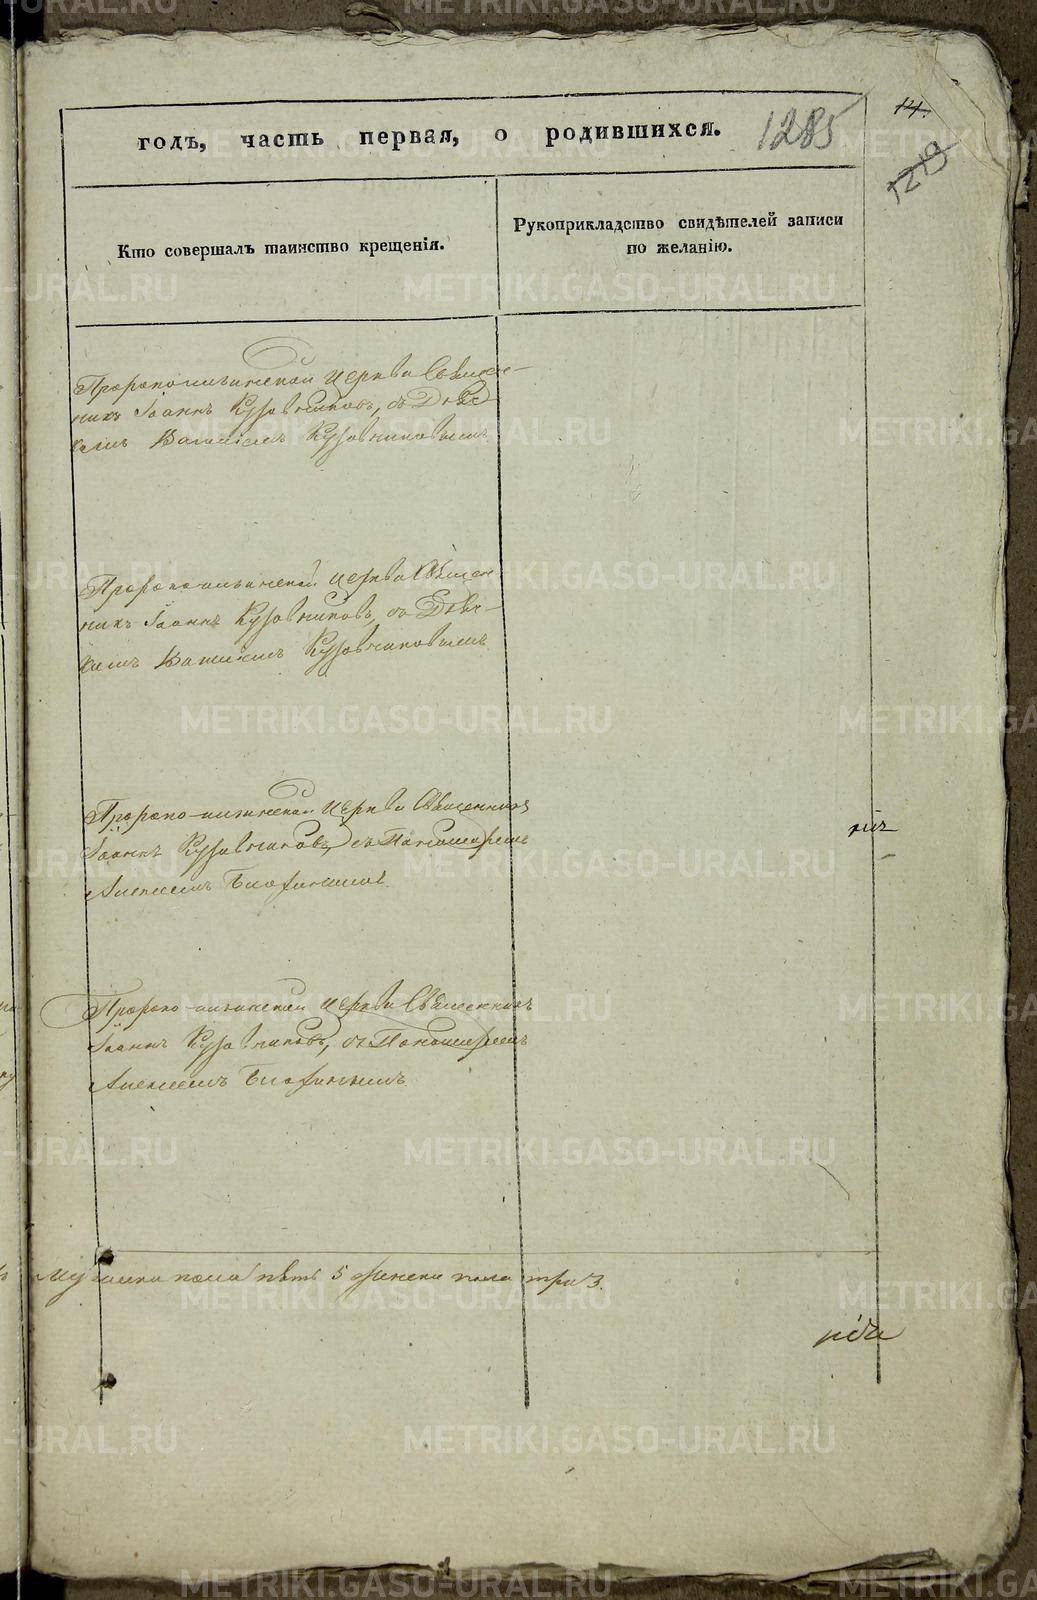 годъ, часть первая, о родившихся.
1285
14.
1279
Кто совершалъ таинство крещенія.
Рукоприкладство свидѣтелей записи
по желанію.
Пророко-ильинской церкви Священ-
никъ Іоаннъ Кузовниковъ, съ Дьяч-
комъ Кузовниковымъ
Пророко-ильинской церкви Священ
никъ Іоаннъ Кузовниковъ, съ Дьяч-
комъ Кузовниковымъ
Пророко-ильинской церкви Священникъ
Іоаннъ Кузовниковъ, съ Пономаремъ
Алексеемъ
Пророко-ильинской церкви Священникъ
Іоаннъ Кузовниковъ, съ Пономаремъ
Алексеемъ
Мужеска пола пять 5 женска пола три 3.
METRIKI.GASO-URAL.RU